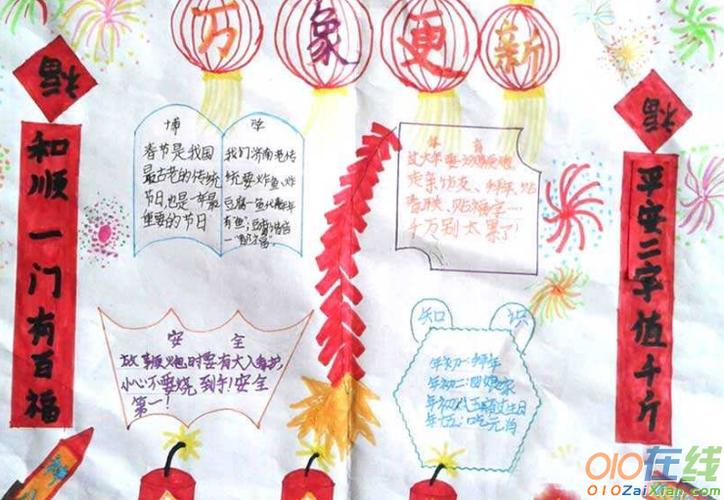 万象更新
福
和顺一门有百福
博学
春节是我国
最古老的传统
节日,也是一年最
重要的节日
我们济南老传
统要炸鱼、炸
体育
走亲访友、拜年、贴
春联、贴福字…
千万别太累了!
福
平安二字值千斤
安全
放鞭炮时要有大人看护
小心不要烧到手!安全
第一!
知识
年初一:拜年
年初二:回娘家
年初八:五谷过生日
年十五:吃元宵
010在线
010ZaiXian.com